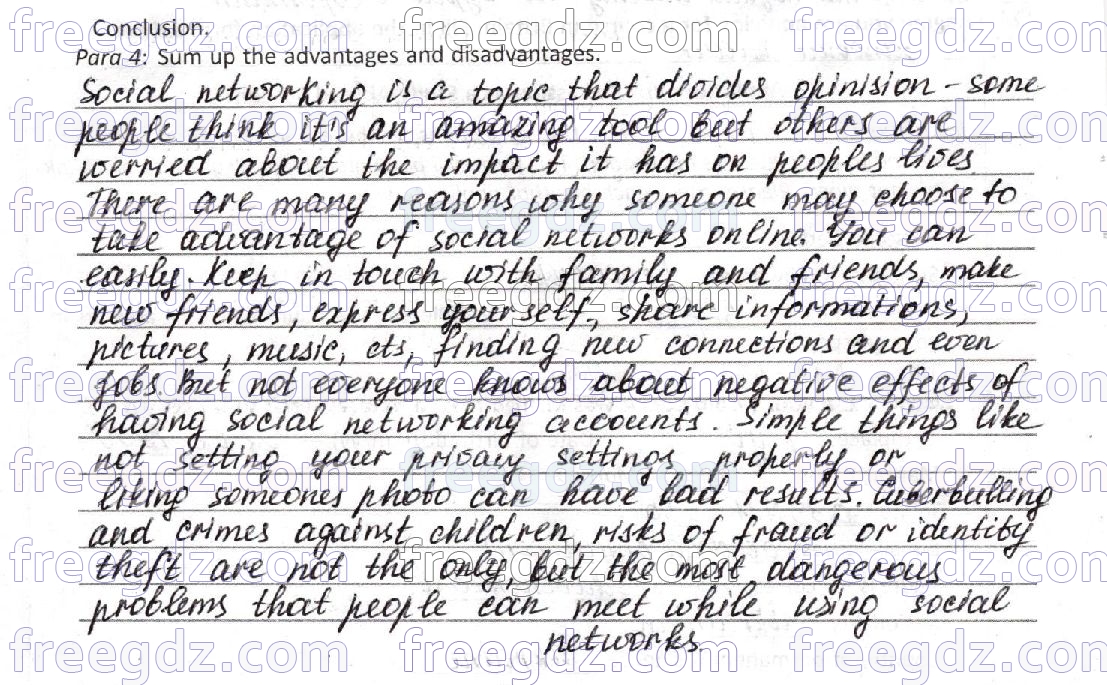 Conclusion.
Para 4: Sum up the advantages and disadvantages.
Social networking is a topic that divides opinision - some
people think it's an amazing tool but others are
worried about the impact it has on peoples lives.
There are many reasons why someone may choose to
take advantage of social networks online. You can
easily. Keep in touch with family and friends, make
new friends, express your self, share informations,
pictures, music, ets, finding new connections and even
jobs. But not everyone knows about negative effects of
having social networking accounts. Simple things like
not setting your privacy settings properly or
liking someones photo can have bad results. Cuberbulling
and crimes against children, risks of fraud or identity
theft are not the only, but the most dangerous
problems that people can meet while using social
networks.
freegdz.com